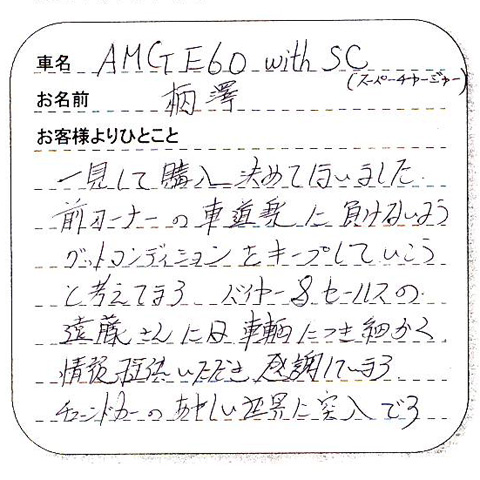 車名 AMG E60 with SC
(スーパーチャージャー)
お名前 柄澤
お客様よりひとこと
一見して購入決めてしまいました
前オーナーの車道楽に負けないよう
グットコンディションをキープしていこう
と考えてます バイヤー&セールスの
遠藤さんには車輌につき細かく
情報提供いただき感謝しています
チューンドカーのあやしい世界に突入です